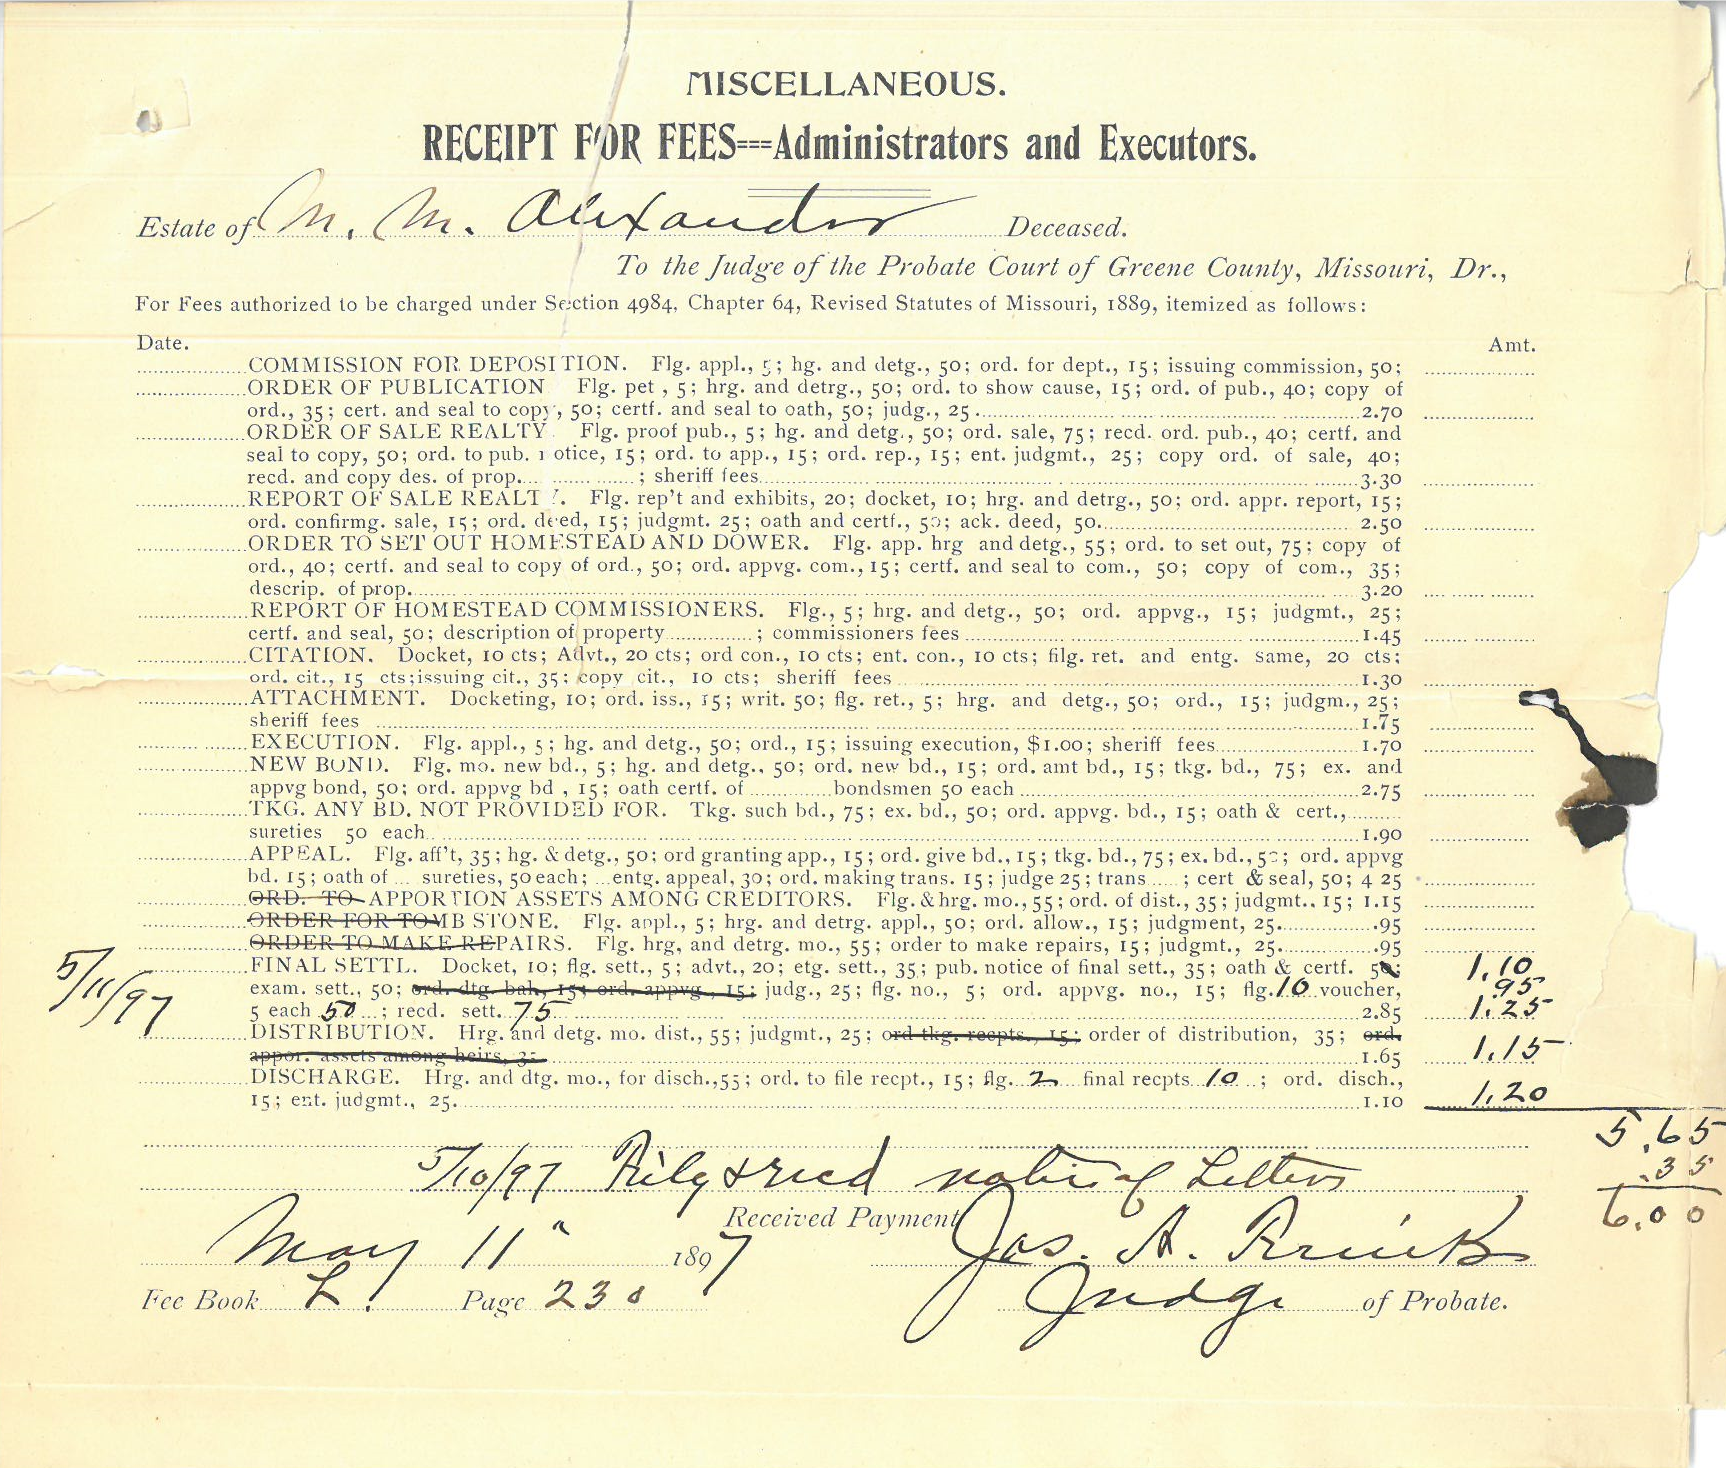 MISCELLANEOUS.
RECEIPT FOR FEES===Administrators and Executors.
Estate of M. M. Alexander Deceased.
To the Judge of the Probate Court of Greene County, Missouri, Dr.,
For Fees authorized to be charged under Section 4984, Chapter 64, Revised Statutes of Missouri, 1889, itemized as follows:
Date. Amt.
COMMISSION FOR DEPOSITION. Flg. appl., 5; hg. and detg., 50; ord. for dept., 15; issuing commission, 50;
ORDER OF PUBLICATION Flg. pet , 5; hrg. and detrg., 50; ord. to show cause, 15; ord. of pub., 40; copy of
ord., 35; cert. and seal to copy, 50; certf. and seal to oath, 50; judg., 25 2.70
ORDER OF SALE REALTY. Flg. proof pub., 5; hg. and detg., 50; ord. sale, 75; recd. ord. pub., 40; certf. and
seal to copy, 50; ord. to pub. notice, 15; ord. to app., 15; ord. rep., 15; ent. judgmt., 25; copy ord. of sale, 40;
recd. and copy des. of prop. ; sheriff fees 3.30
REPORT OF SALE REALTY. Flg. rep't and exhibits, 20; docket, 10; hrg. and detrg., 50; ord. appr. report, 15;
ord. confirmg. sale, 15; ord. deed, 15; judgmt. 25; oath and certf., 50; ack. deed, 50. 2.50
ORDER TO SET OUT HOMESTEAD AND DOWER. Flg. app. hrg and detg., 55; ord. to set out, 75; copy of
ord., 40; certf. and seal to copy of ord., 50; ord. appvg. com., 15; certf. and seal to com., 50; copy of com., 35;
descrip. of prop. 3.20
REPORT OF HOMESTEAD COMMISSIONERS. Flg., 5; hrg. and detg., 50; ord. appvg., 15; judgmt., 25;
certf. and seal, 50; description of property ; commissioners fees 1.45
CITATION. Docket, 10 cts; Advt., 20 cts; ord con., 10 cts; ent. con., 10 cts; filg. ret. and entg. same, 20 cts;
ord. cit., 15 cts; issuing cit., 35; copy cit., 10 cts; sheriff fees 1.30
ATTACHMENT. Docketing, 10; ord. iss., 15; writ. 50; flg. ret., 5; hrg. and detg., 50; ord., 15; judgm., 25;
sheriff fees 1.75
EXECUTION. Flg. appl., 5; hg. and detg., 50; ord., 15; issuing execution, $1.00; sheriff fees 1.70
NEW BOND. Flg. mo. new bd., 5; hg. and detg., 50; ord. new bd., 15; ord. amt bd., 15; tkg. bd., 75; ex. and
appvg bond, 50; ord. appvg bd , 15; oath certf. of bondsmen 50 each 2.75
TKG. ANY BD. NOT PROVIDED FOR. Tkg. such bd., 75; ex. bd., 50; ord. appvg. bd., 15; oath & cert.,
sureties 50 each 1.90
APPEAL. Flg. aff't, 35; hg. & detg., 50; ord granting app., 15; ord. give bd., 15; tkg. bd., 75; ex. bd., 50; ord. appvg
bd. 15; oath of sureties, 50 each; entg. appeal, 30; ord. making trans. 15; judge 25; trans ; cert & seal, 50; 4 25
ORD. TO APPORTION ASSETS AMONG CREDITORS. Flg. & hrg. mo., 55; ord. of dist., 35; judgmt., 15; 1.15
ORDER FOR TOMB STONE. Flg. appl., 5; hrg. and detrg. appl., 50; ord. allow., 15; judgment, 25. .95
ORDER TO MAKE REPAIRS. Flg. hrg. and detrg. mo., 55; order to make repairs, 15; judgmt., 25. .95
5/11/97 FINAL SETTL. Docket, 10; flg. sett., 5; advt., 20; etg. sett., 35; pub. notice of final sett., 35; oath & certf. 5; 1.10
exam. sett., 50; ord. dtg. bah, 15; ord. appvg., 15; judg., 25; flg. no., 5; ord. appvg. no., 15; flg. 10 voucher, .95
5 each 50 ; recd. sett. 75 2.85 1.25
DISTRIBUTION. Hrg. and detg. mo. dist., 55; judgmt., 25; ord tkg. recpts., 15; order of distribution, 35; ord.
appor. assets among heirs, 35 1.65 1.15
DISCHARGE. Hrg. and dtg. mo., for disch., 55; ord. to file recpt., 15; flg. 2 final recpts 10 ; ord. disch.,
15; ent. judgmt., 25. 1.10 1.20
5.65
5/10/97 Filg & recd notice of Letters .35
6.00
Received Payment
May 11" 1897 Jas. A.
Fee Book L. Page 230 Judge of Probate.